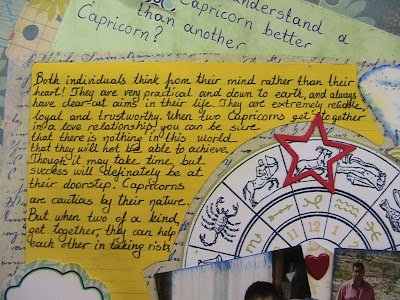 understand a
Capricorn better
than another
Capricorn?
Both individuals think from their mind rather than their
heart! They are very practical and down to earth, and always
have clear-cut aims in their life. They are extremely reliable,
loyal and trustworthy. When two Capricorns get together
in a love relationship, you can be sure
that there is nothing in this world
that they will not be able to achieve.
Though it may take time, but
success will definately be at
their doorstep! Capricorns
are cautious by their nature.
But when two of a kind,
get together, they can help
each other in taking risks.
12
11
1